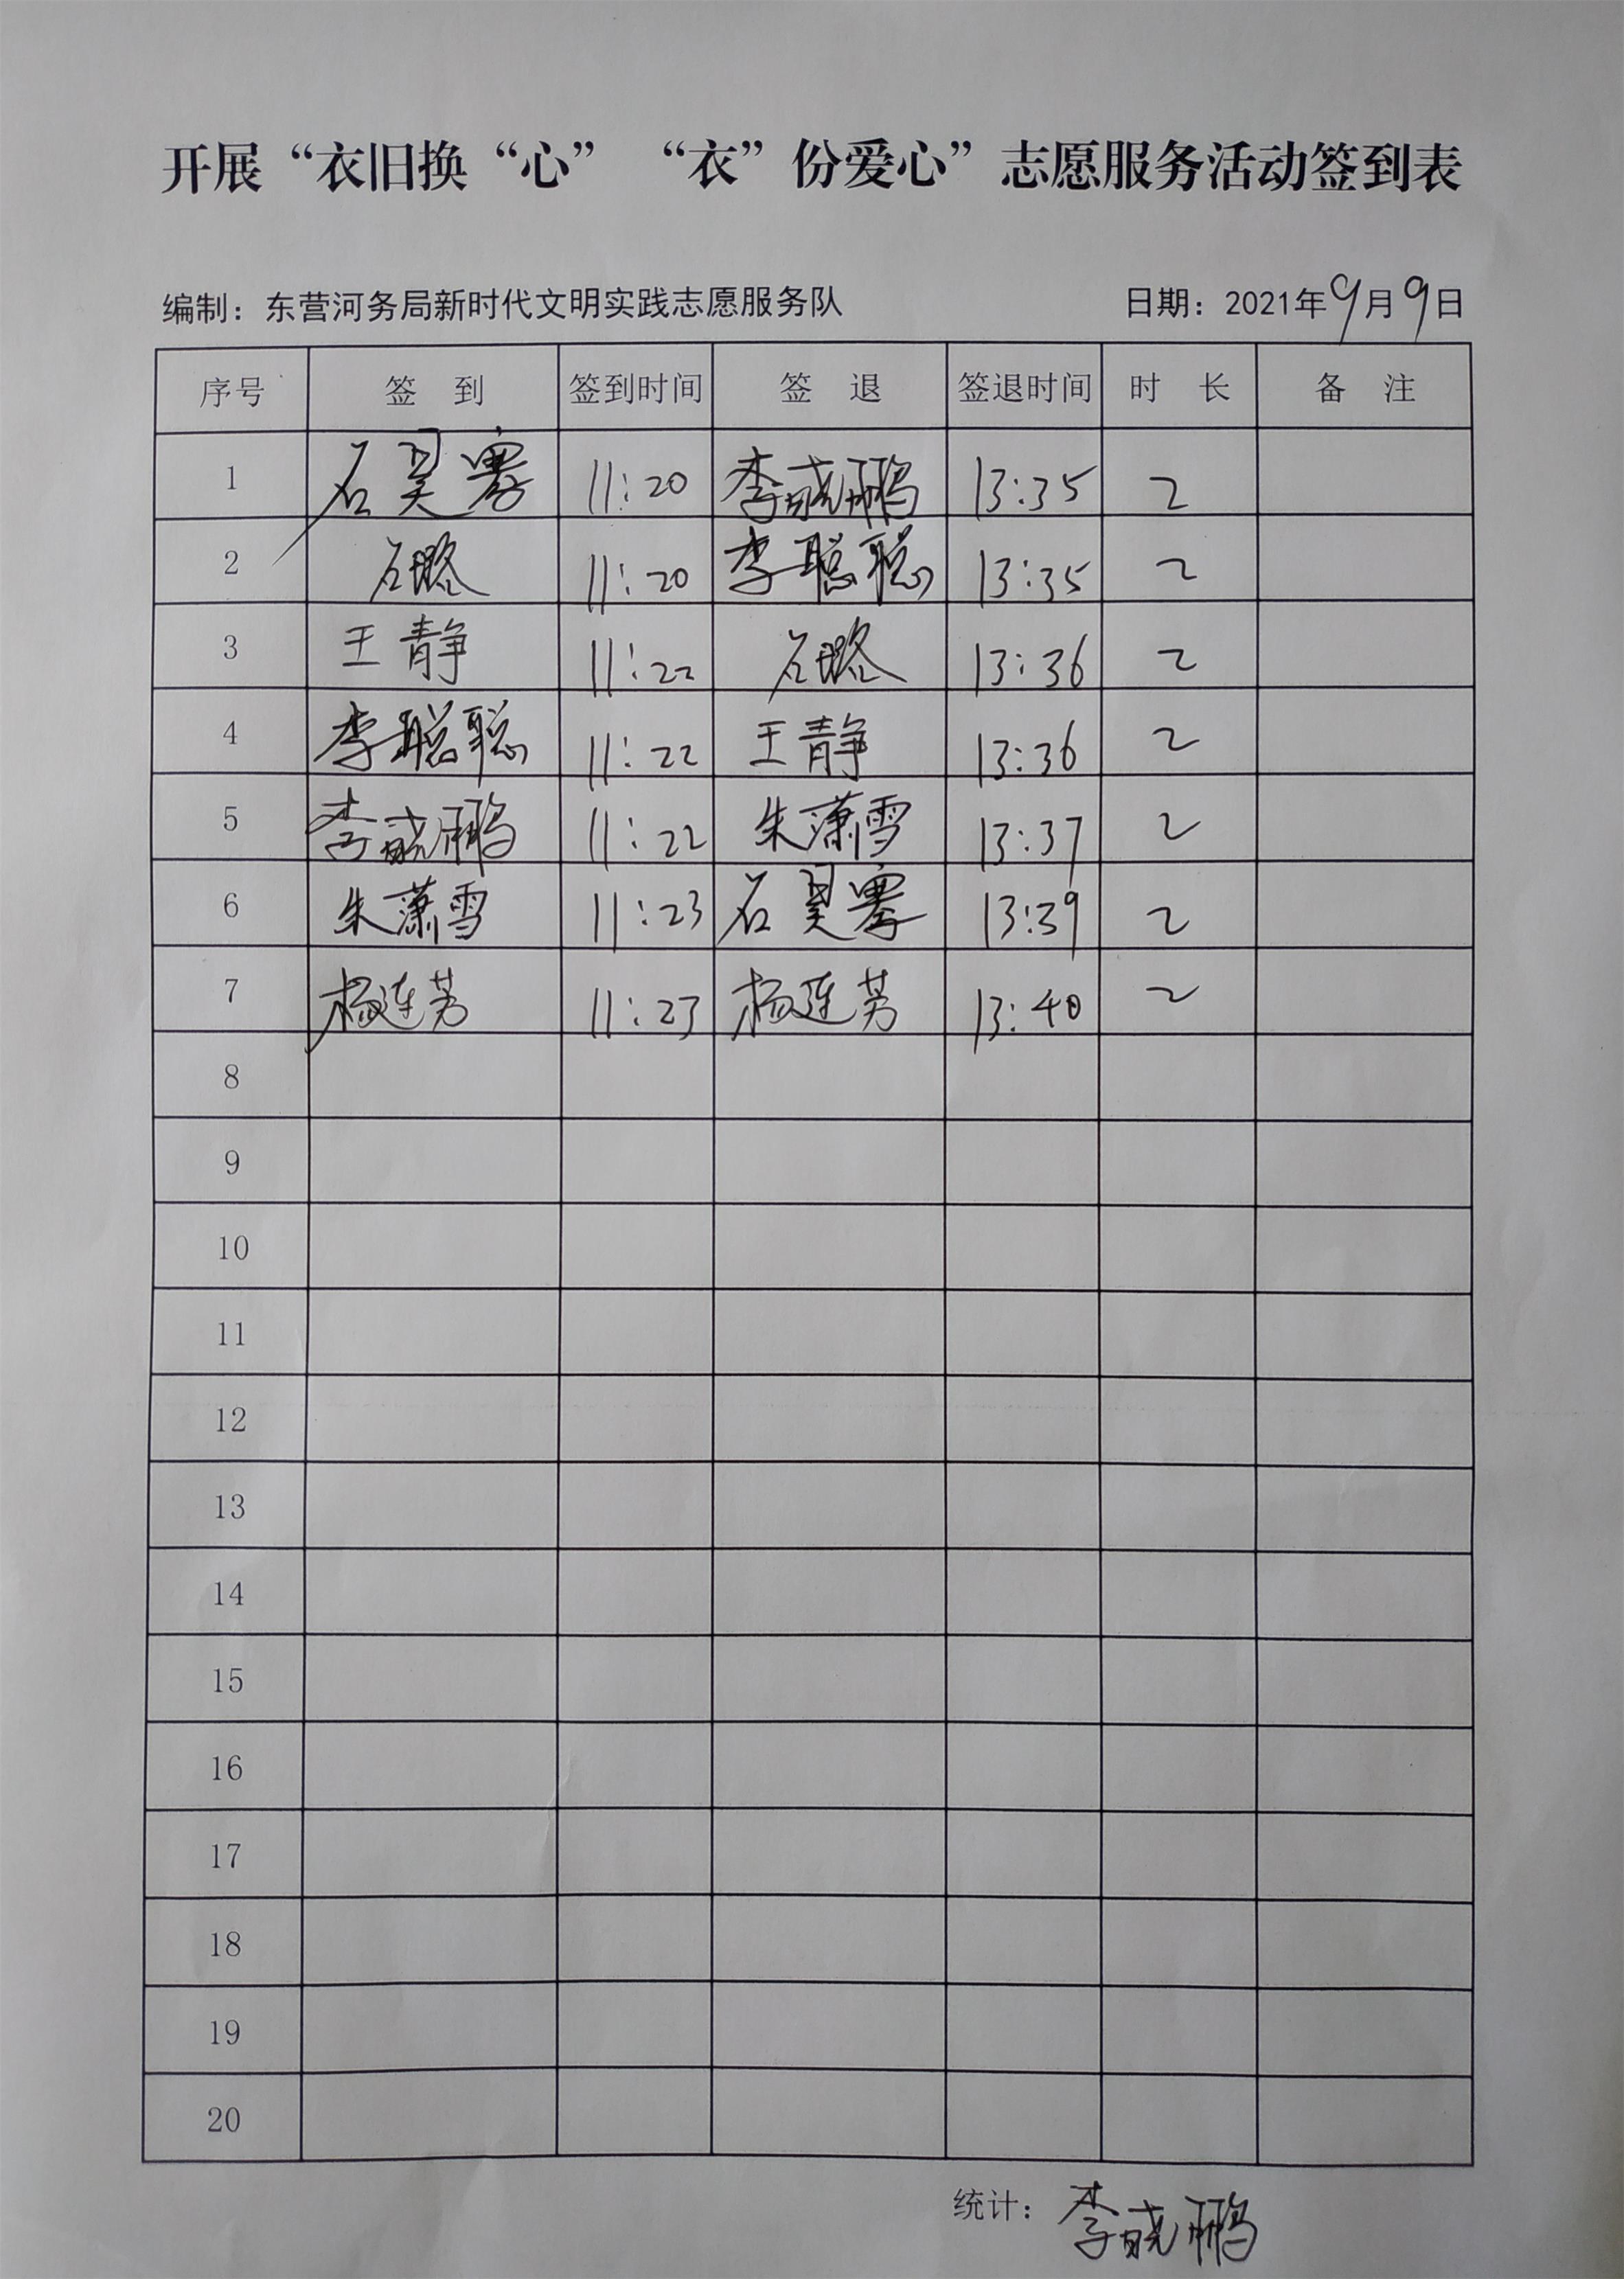 开展“衣旧换“心” “衣”份爱心”志愿服务活动签到表
编制：东营河务局新时代文明实践志愿服务队 日期：2021年9月9日
序号 签 到 签到时间 签 退 签退时间 时 长 备 注
1 石昊骞 11:20 李晓鹏 13:35 2
2 石璐 11:20 李聪聪 13:35 2
3 王静 11:22 石璐 13:36 2
4 李聪聪 11:22 王静 13:36 2
5 李晓鹏 11:22 朱潇雪 13:37 2
6 朱潇雪 11:23 石昊骞 13:39 2
7 杨连芳 11:23 杨连芳 13:40 2
8
9
10
11
12
13
14
15
16
17
18
19
20
统计：李晓鹏